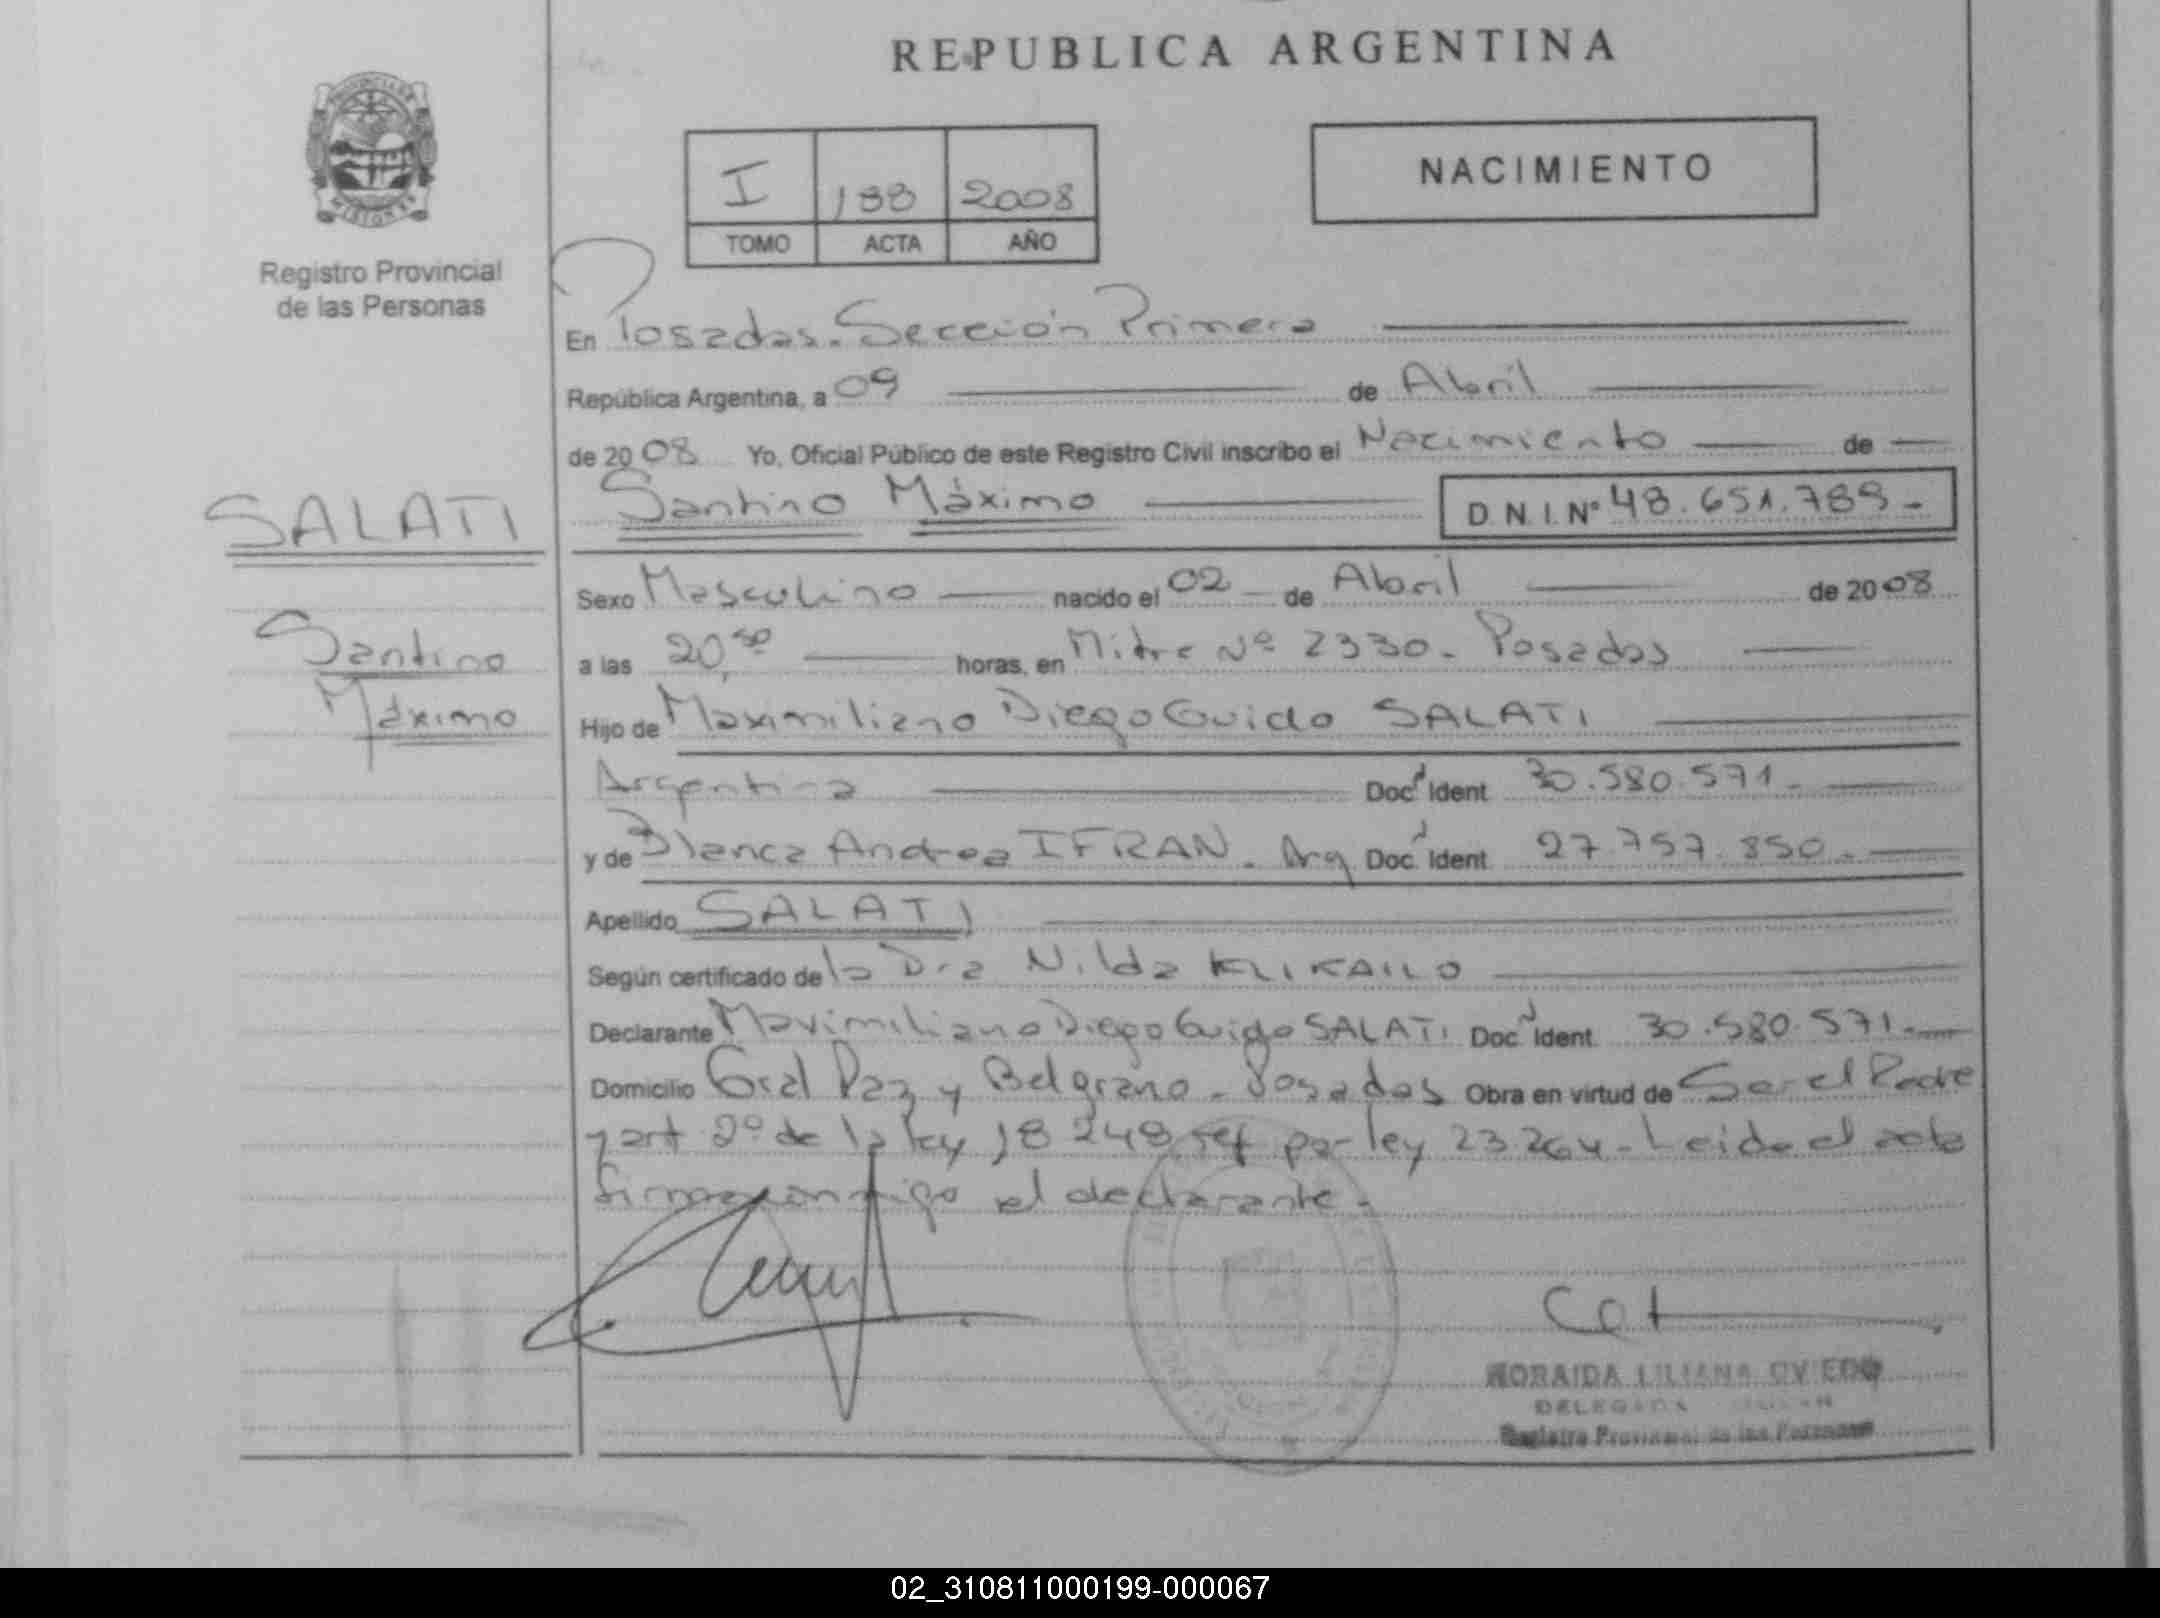 REPUBLICA ARGENTINA
PROVINCIA DE
MISIONES
Registro Provincial
de las Personas
I 188 2008
TOMO ACTA AÑO
NACIMIENTO
En Posadas. Sección Primera
República Argentina, a 09 de Abril
de 2008 Yo, Oficial Público de este Registro Civil inscribo el Nacimiento de
Santino Máximo D.N.I.Nº 48.651.789-
SALATI
Santino
Máximo
Sexo Masculino nacido el 02 de Abril de 2008
a las 20,50 horas, en Mitre Nº 2330. Posadas
Hijo de Maximiliano Diego Guido SALATI
Argentina Doc Ident 30.580.571-
y de Blanca Andrea IFRAN. Arg Doc Ident 27.757.850.-
Apellido SALATI
Según certificado de la Dra Nilda KLIKAILO
Declarante Maximiliano Diego Guido SALATI Doc Ident 30.580.571.-
Domicilio Gral Paz y Belgrano. Posadas Obra en virtud de Ser el Padre
y art 2º de la ley 18248 ref por ley 23264- Leida el acta
firma conmigo el declarante-
LILIANA OVIEDO
DELEGADA
Registro Provincial de las Personas
02_310811000199-000067